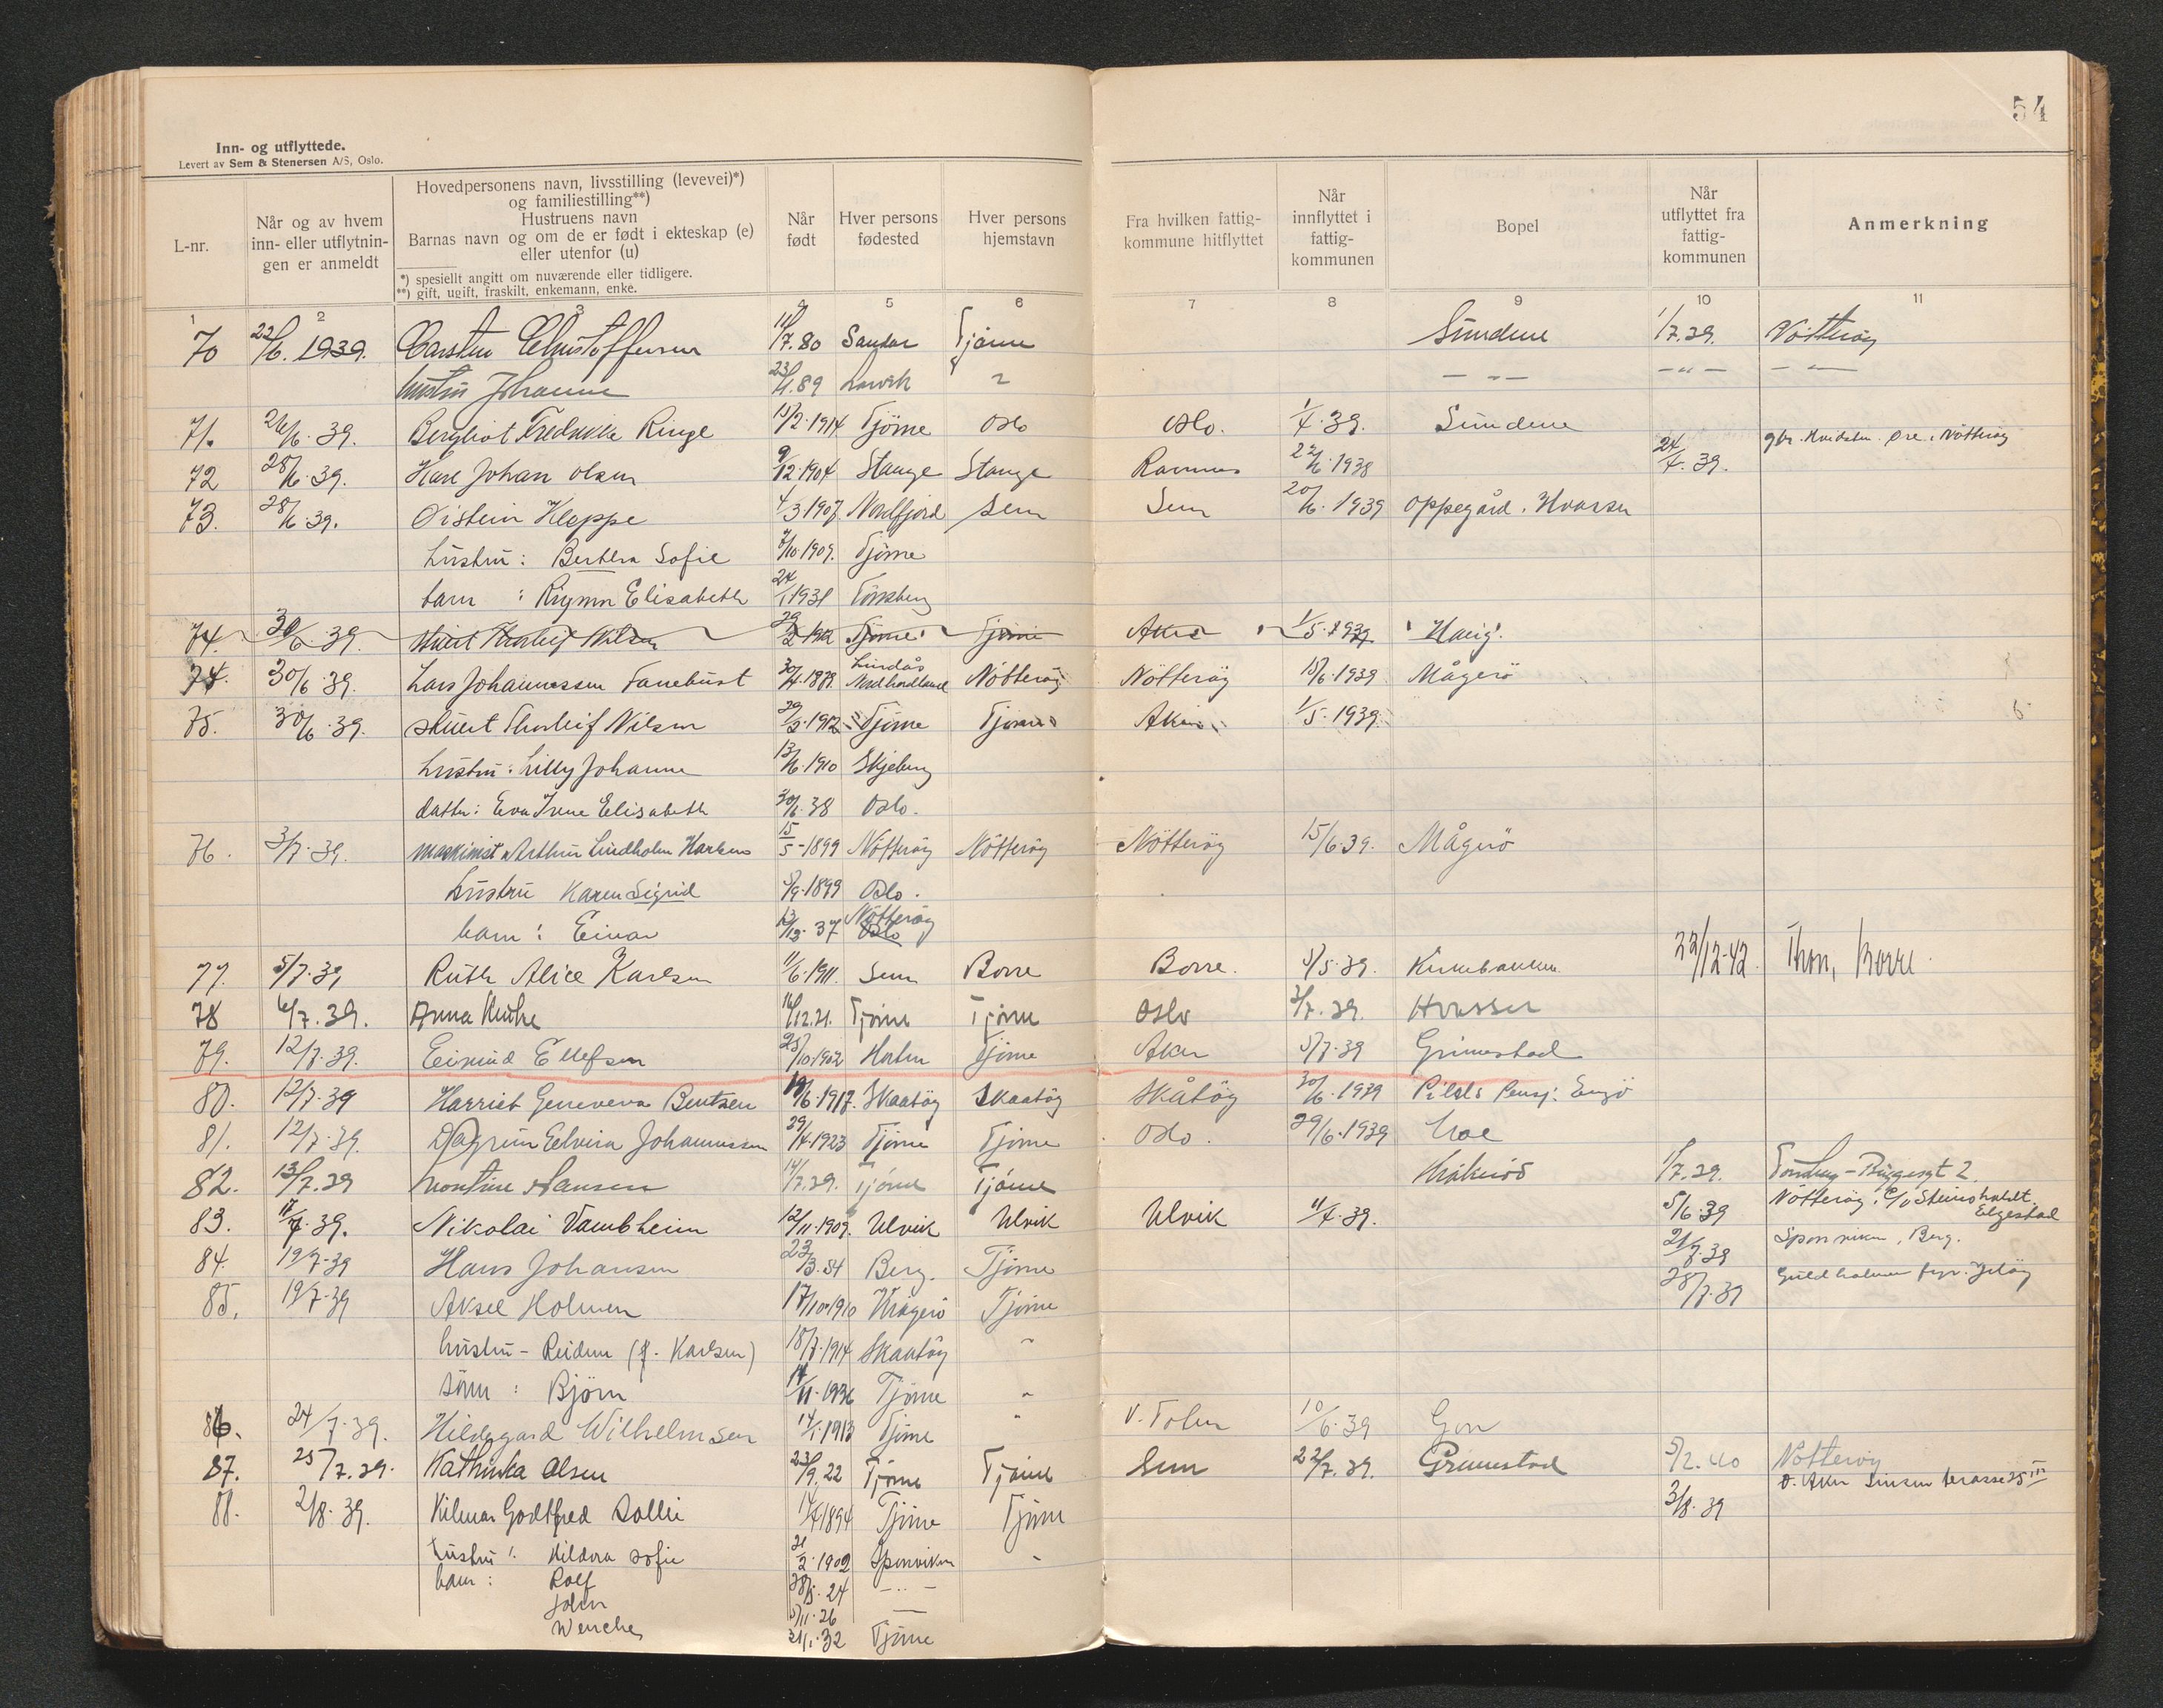 54
Inn- og utflyttede.
Levert av Sem & Stenersen A/S, Oslo.
L-nr.
Når og av hvem inn- eller utflytnin- gen er anmeldt
Hovedpersonens navn, livsstilling (levevei)*) og familiestilling**)
Hustruens navn
Barnas navn og om de er født i ekteskap (e) eller utenfor (u)
*) spesiellt angitt om nuværende eller tidligere.
**) gift, ugift, fraskilt, enkemann, enke.
Når født
Hver persons fødested
Hver persons hjemstavn
Fra hvilken fattig- kommune hitflyttet
Når innflyttet i fattig- kommunen
Bopel
Når utflyttet fra fattig- kommunen
Anmerkning
1 2 3 4 5 6 7 8 9 10 11
70 22/6. 1939. Carsten Christoffersen 11/7.80 Sandar Tjöme Sundene 1/7.39. Nötteröy
hustru Johanne 23/1.89 Larvik " — " — — " — — " —
71. 26/6.39. Bergliot Fredrikke Ringe 15/2.1914 Tjöme Oslo Oslo. 1/4.39. Sundene
72 28/6.39. Karl Johan Olsen 9/12.1904 Stange Stange Ramnes 22/6.1938 24/4.39. Nötteröy
73. 28/6.39. Öistein Kleppe 4/3 1907 Nordfjord Sem Sem 20/6.1939 Oppegård. Hvasser
hustru: Berthea Sofie 7/10 1909. Tjöme
barn : Rigmor Elisabeth 24/1 1931 Tönsberg
74. 30/6.39. Stuert Thorleif Nilsen 29/3 1912 Tjöme Tjöme Aker 1/5.1939
74. 30/6.39. Lars Johannessen Fanebust 30/4.1879. Lindås Nordhordland Nötteröy Nötteröy 15/6.1939 Mågerö
75. 30/6.39. Stuert Thorleif Nilsen 29/3.1912 Tjöme Tjöme Aker 1/5.1939.
hustru: Lilly Johanne 13/6.1910 Skjeberg
datter: Eva Irene Elisabeth 30/1.38 Oslo.
76. 3/7.39. maskinist Arthur Lindholm Karlsen 15/5-1899 Nötteröy Nötteröy Nötteröy 15/6.39. Mågerö
hustru Karen Sigrid 5/9.1899 Oslo.
barn: Einar 13/12.37 Nötteröy Oslo
77. 5/7.39 Ruth Alice Karlsen 11/6.1911. Sem Borre Borre. 5/5.39. 22/12-42 Thon, Borre
78 6/7.39. Anna 16/12.21. Tjöme Tjöme Oslo 3/7.39. Hvasser
79. 12/7.39. Eivind Ellefsen 25/10.1902 Horten Tjöme Aker 5/7.39 Grimestad
80. 12/7.39 Harriet Geneveva Bentzen 19/6.1917. Skaatöy Skaatöy Skåtöy 30/6.1939 Pilals Pensj: Engö
81. 12/7.39. Dagrun Elvira Johannessen 29/4.1923 Tjöme Tjöme Oslo. 29/6.1939 Moe
82. 13/7.39 Hansen 14/7.39. Tjöme Tjöme 1/7.39. Tönsberg
83. 17/7.39. Nikolai Vambheim 12/11.1909. Ulvik Ulvik Ulvik 11/4.39. 5/6.39 Nötteröy, c/o Steinsholdt Elgestad
84. 19/7-39 Hans Johansen 23/3.54 Berg. Tjöme 21/7.39 Sponviken, Berg.
85. 19/7-39 Aksel Holmen 17/10.1910 Kragerö Tjöme 28/7.39 Guldholmen fyr. Jelöy
hustru - Reidun (f. Karlsen) 18/7.1914 Skaatöy "
sönn : Björn 14/11-1936 Tjöme "
86. 24/7.39. Hildegard Wilhelmsen 14/1.1913 Tjöme " V. Toten 10/6.39 Gon
87. 25/7.39. Kathinka Olsen 23/9.22 Tjöme Tjöme Sem 22/7.39. Grimestad 5/2.40 Nötteröy
88. 2/8.39. Hilmar Godtfred Sollie 14/4 1894 Tjöme Tjöme 3/8.39 V. Aker Sinsen terasse 25 III
hustru: Hildora Sofie 21/2.1902 Sponviken "
barn: Rolf 28/5.24 — " —
John 5/11.26 —
Wenche 21/1.32 Tjöme